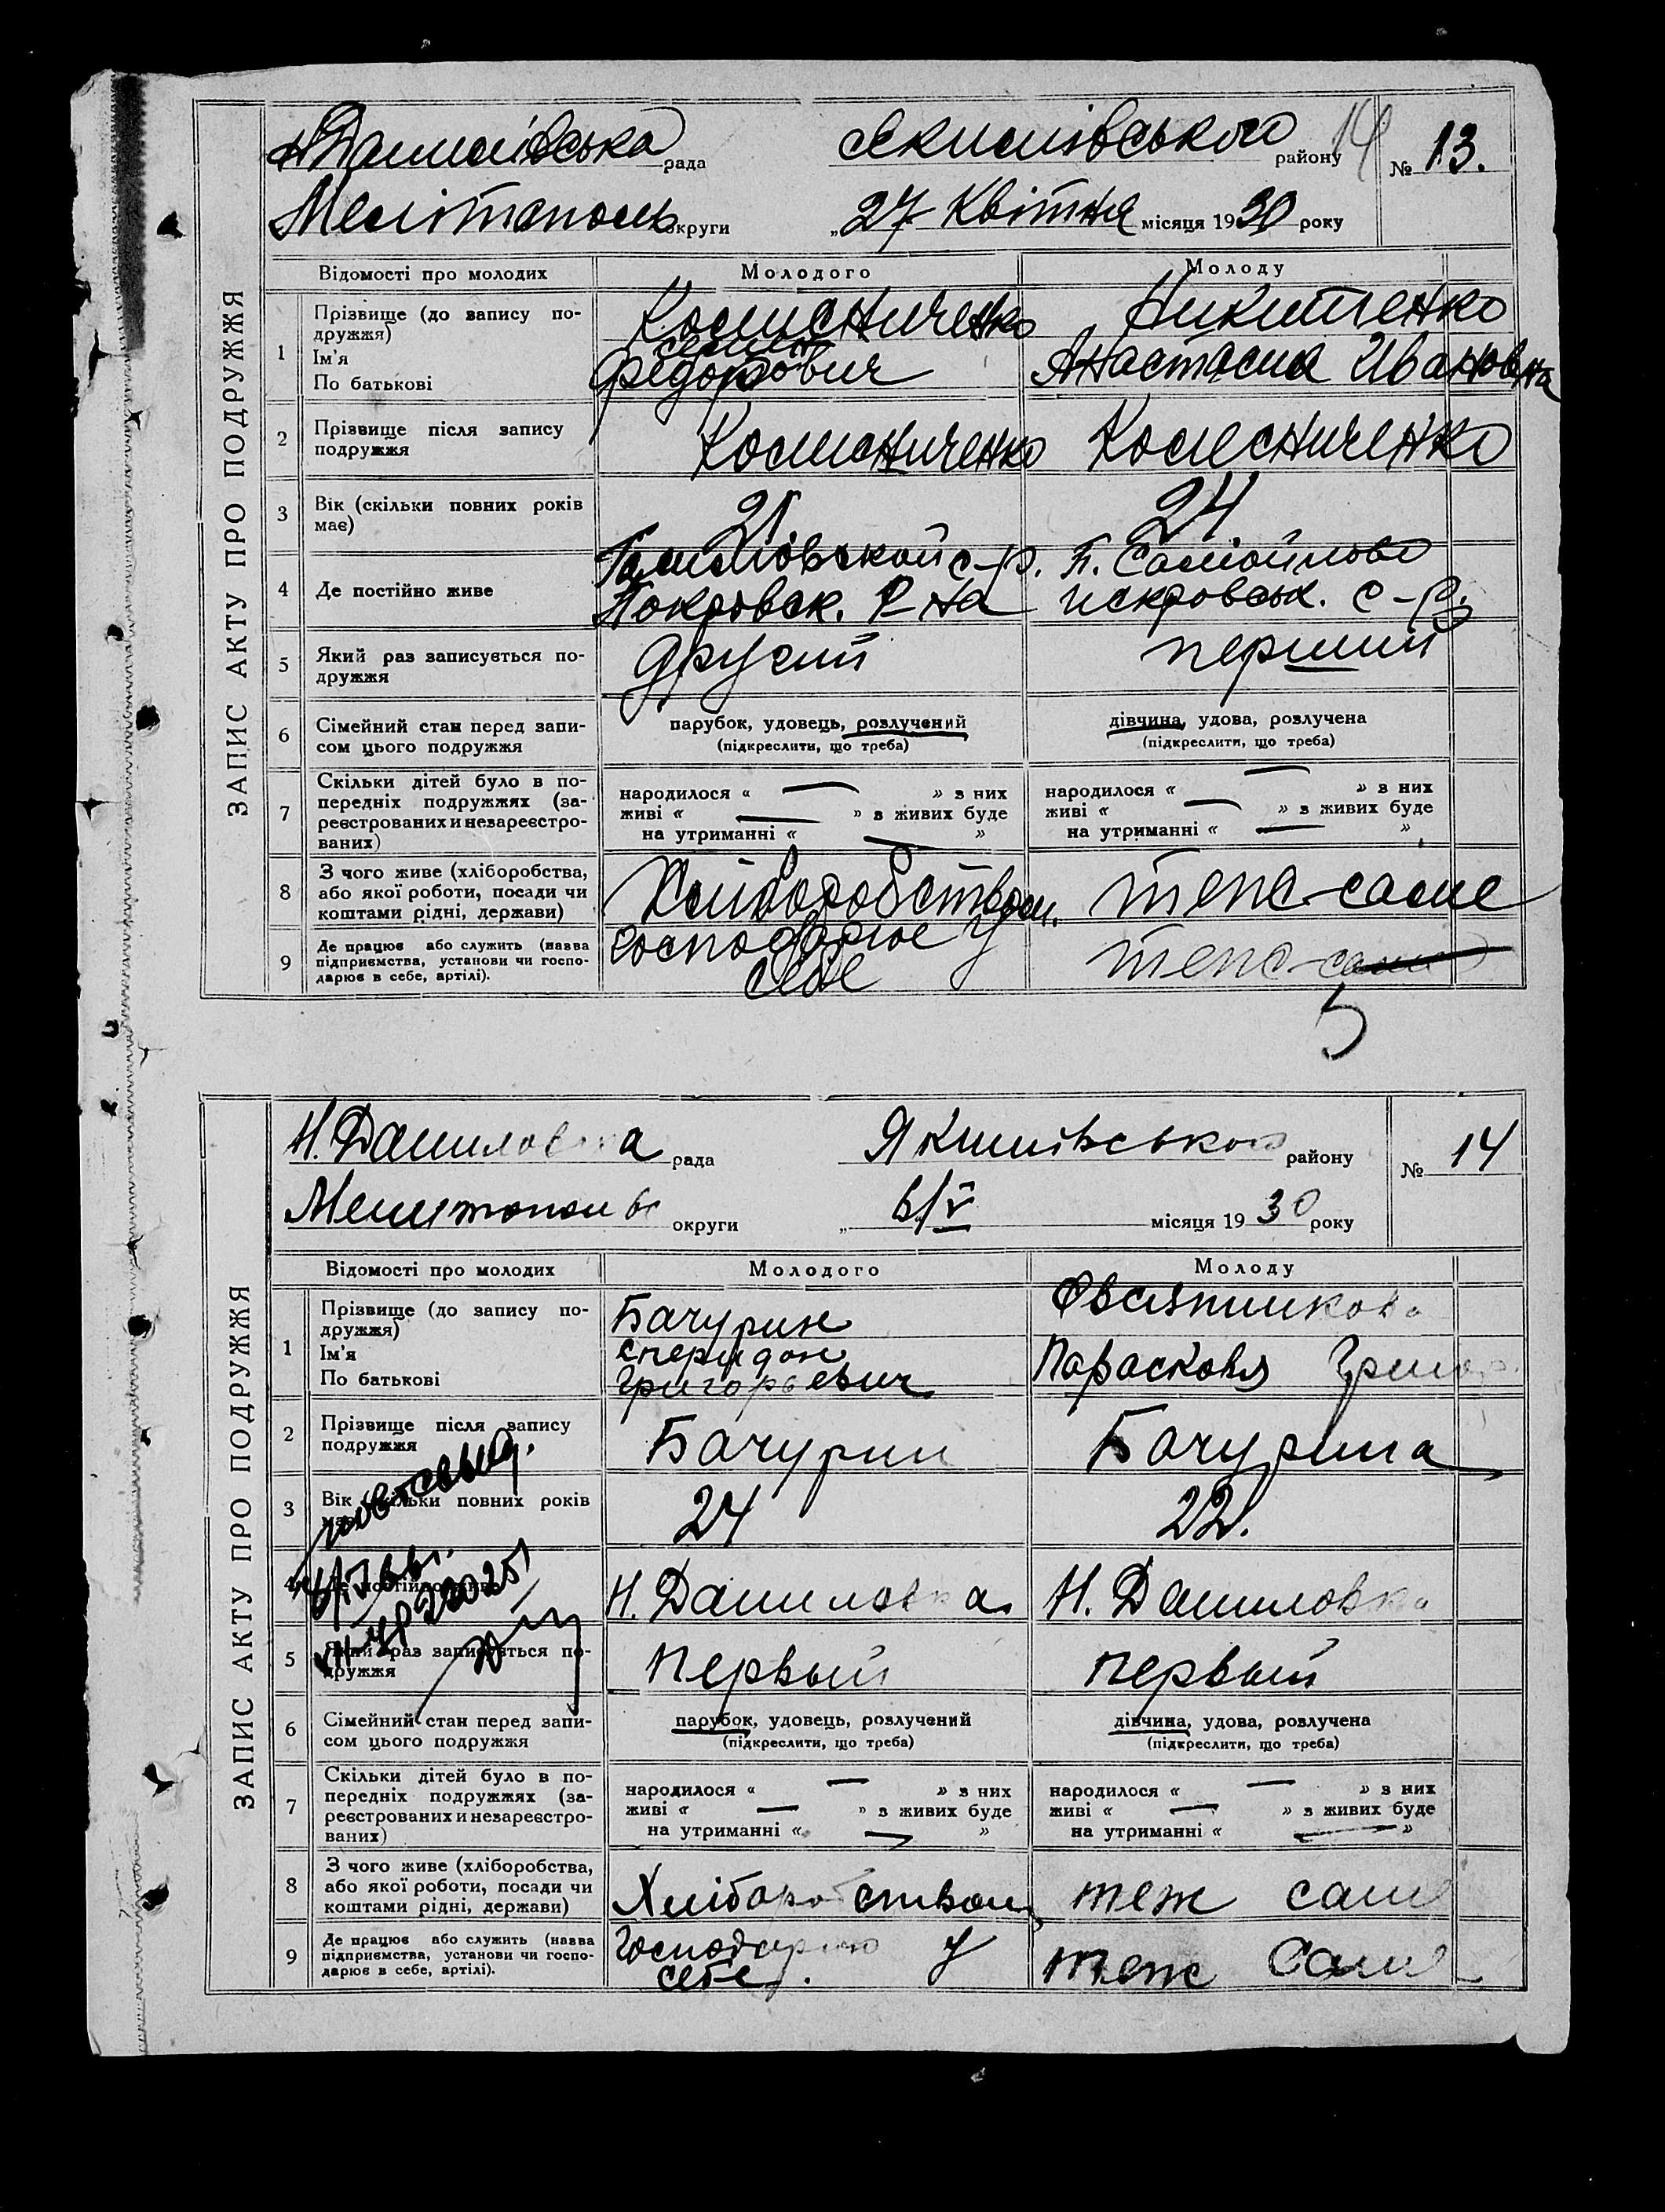 ЗАПИС АКТУ ПРО ПОДРУЖЖЯ
Н Данилівська рада Якимівського району 14 № 13.
Мелітополь округи „27 Квітня місяця 1930 року
Відомості про молодих Молодого Молоду
1 Прізвище (до запису по-
дружжя)
Ім'я
По батькові
Колисниченко
Семен
Федорович
Никитченко
Анастасия Ивановна
2 Прізвище після запису
подружжя
Колисниченко Колесниченко
3 Вік (скільки повних років
має)
21 24
4 Де постійно живе
с-р.
Покровск. Р-на
с-р.
5 Який раз записується по-
дружжя
другий перший
6 Сімейний стан перед запи-
сом цього подружжя
парубок, удовець, розлучений
(підкреслити, що треба)
дівчина, удова, розлучена
(підкреслити, що треба)
7 Скільки дітей було в по-
передніх подружжях (за-
реєстрованих и незареєстро-
ваних)
народилося « — » з них
живі « — » в живих буде
на утриманні « — »
народилося « — » з них
живі « — » в живих буде
на утриманні « — »
8 З чого живе (хліборобства,
або якої роботи, посади чи
коштами рідні, держави)
Хліборобством. теж-саме
9 Де працює або служить (назва
підприємства, установи чи госпо-
дарює в себе, артілі).
господарює у
себе
теж-саме
5
ЗАПИС АКТУ ПРО ПОДРУЖЖЯ
Н. Даниловка рада Якимівського району № 14
Мелитополь округи „6/V місяця 1930 року
Відомості про молодих Молодого Молоду
1 Прізвище (до запису по-
дружжя)
Ім'я
По батькові
Бачурин
Спиридон
Григорьевич
Овсяникова
Парасковя Григор.
2 Прізвище після запису
подружжя
Бачурин Бачурина
3 Вік (скільки повних років
має)
24 22.
4 Де постійно живе
Н. Даниловка Н. Даниловка
5 Який раз записується по-
дружжя
первый первый
6 Сімейний стан перед запи-
сом цього подружжя
парубок, удовець, розлучений
(підкреслити, що треба)
дівчина, удова, розлучена
(підкреслити, що треба)
7 Скільки дітей було в по-
передніх подружжях (за-
реєстрованих и незареєстро-
ваних)
народилося « — » з них
живі « — » в живих буде
на утриманні « — »
народилося « — » з них
живі « — » в живих буде
на утриманні « — »
8 З чого живе (хліборобства,
або якої роботи, посади чи
коштами рідні, держави)
Хліборобством теж саме
9 Де працює або служить (назва
підприємства, установи чи госпо-
дарює в себе, артілі).
Господарює у
себе.
теж саме